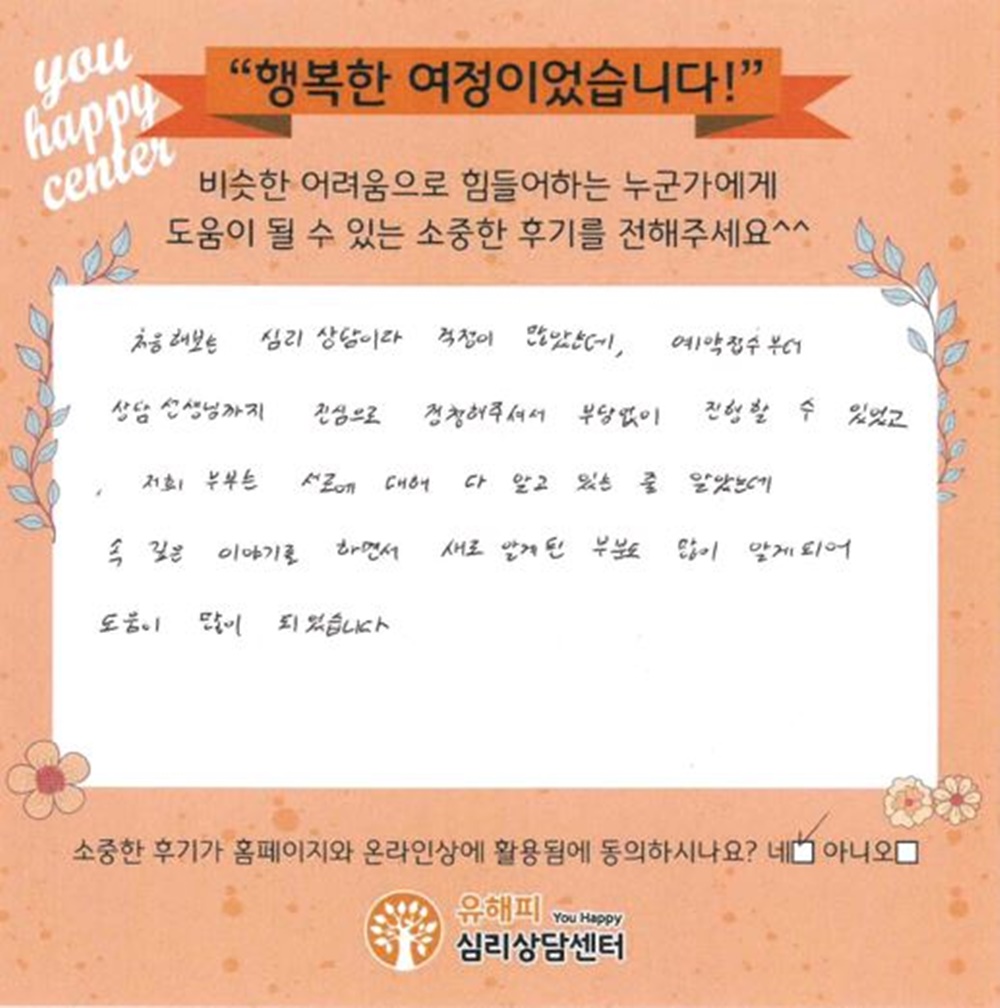 you
happy
center
“행복한 여정이었습니다!”
비슷한 어려움으로 힘들어하는 누군가에게
도움이 될 수 있는 소중한 후기를 전해주세요^^
처음해보는 심리 상담이라 걱정이 많았는데, 예약접수부터
상담 선생님까지 진심으로 경청해주셔서 부담없이 진행할 수 있었고
, 저희 부부는 서로에 대해 다 알고 있는 줄 알았는데
속 깊은 이야기를 하면서 새로 알게된 부분도 많이 알게되어
도움이 많이 되었습니다
소중한 후기가 홈페이지와 온라인상에 활용됨에 동의하시나요? 네 아니오
유해피 You Happy
심리상담센터